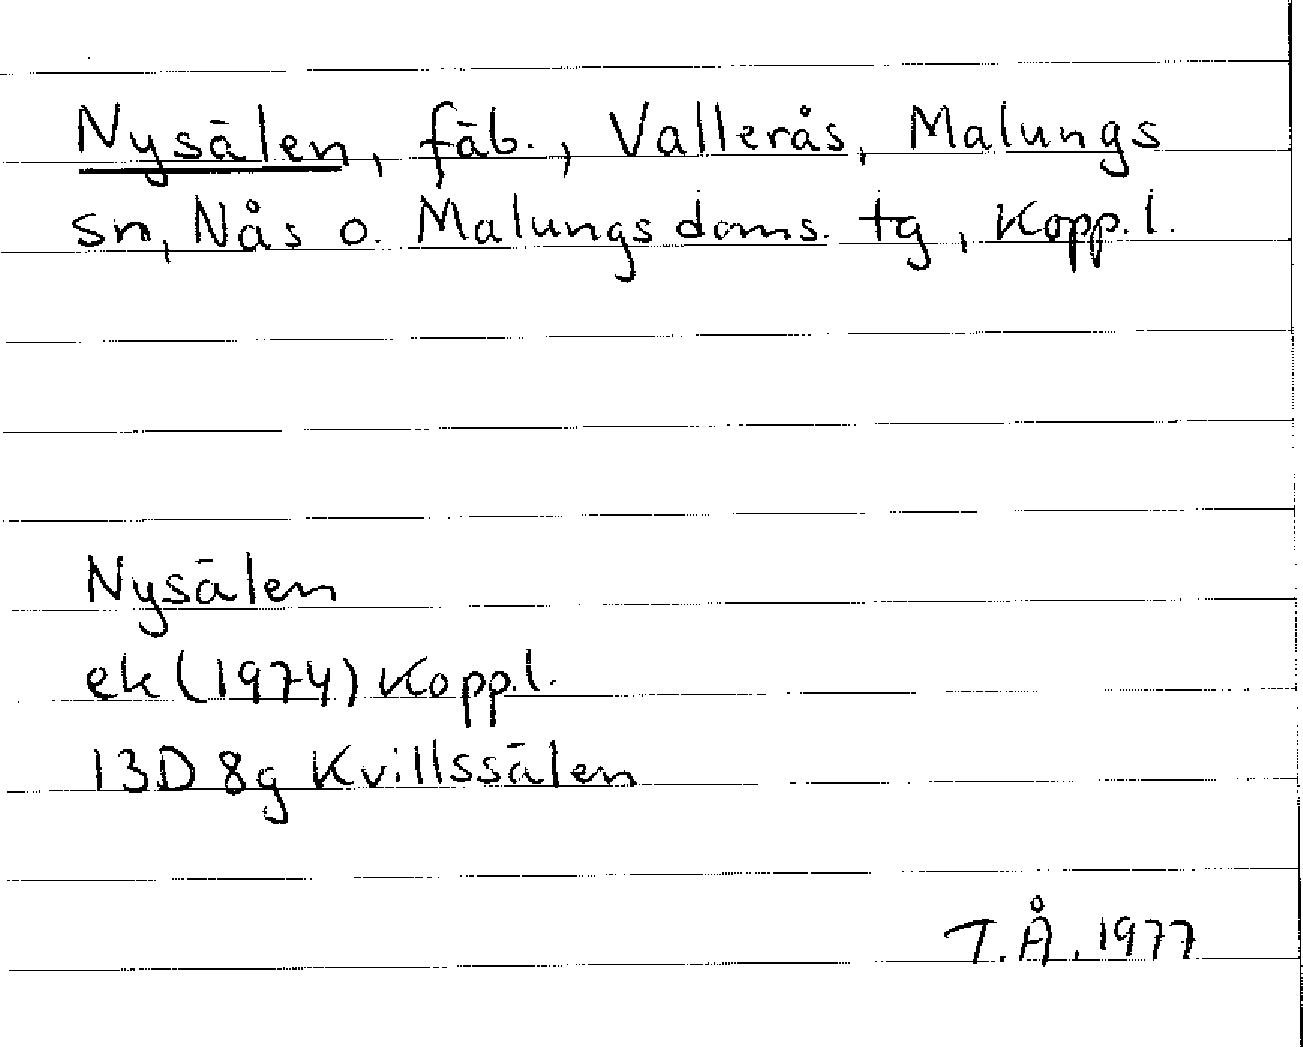 Nysälen, fäb., Vallerås, Malungs
sn, Nås o. Malungs doms. tg, Kopp. l.
Nysälen
ek (1974) Kopp. l.
13D 8g Kvillssälen
T.Å. 1977